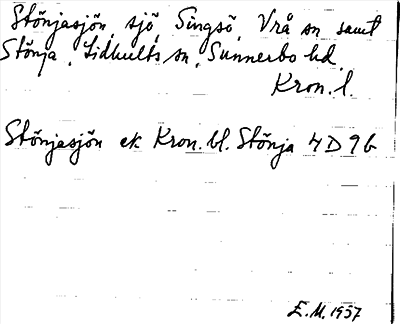 Stönjasjön, sjö, Singsö, Vrå sn samt
Stönja, Lidhults sn, Sunnerbo hd.
Kron. l.
Stönjasjön ek Kron. bl. Stönja 4 D 9 b
E.M. 1957